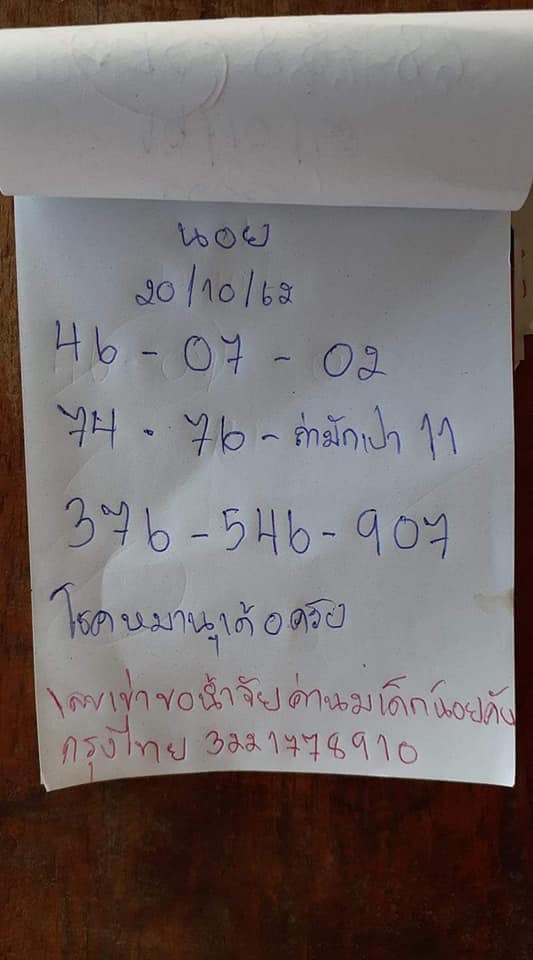 นอย
20/10/62
46 - 07 - 02
74 . 76 - ถ่ามักเปา 11
376 - 546 - 907
โชคหมานๆเด้อครับ
เลขเข่าขอน้ำจัยค่านมเด็กน้อยคับ
กรุงไทย 3221778910